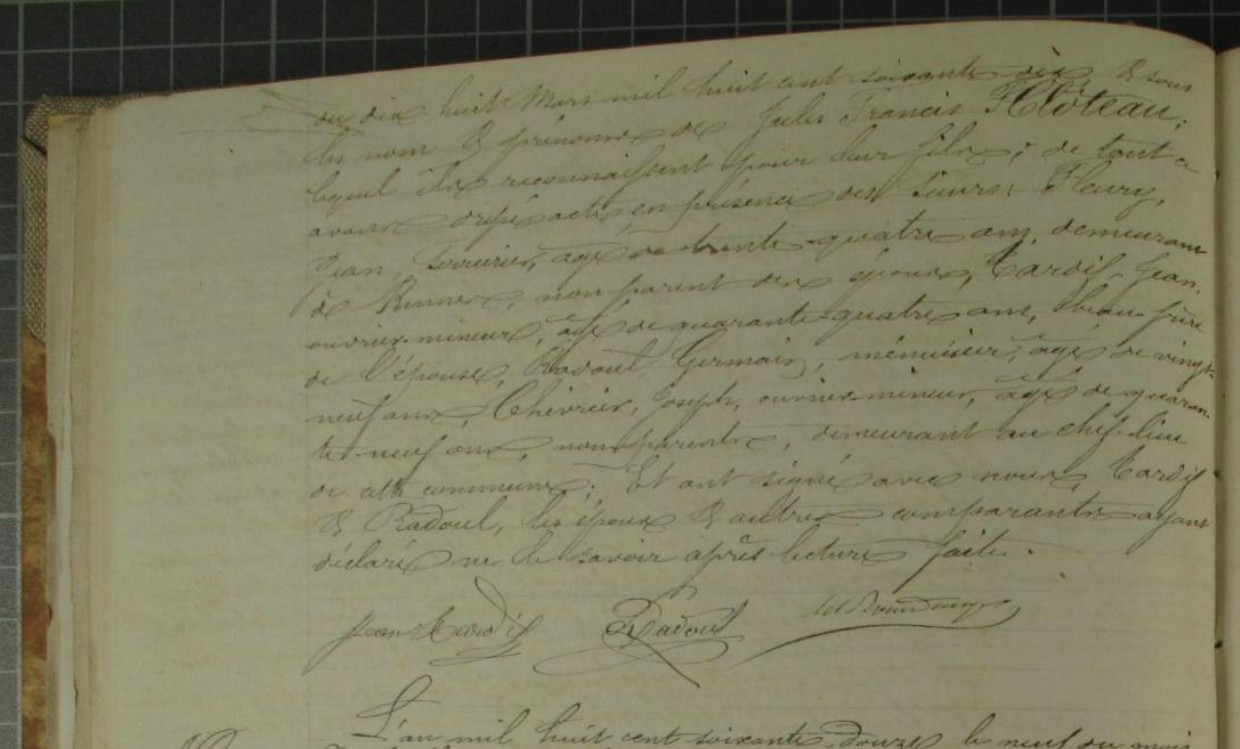 du dix huit Mars mil huit cent soixante dix, & sous
les nom & prénoms de Jules Francis Cloteau,
lequel ils reconnaissent pour leur fils; de tout ce
avons dressé acte, en présence des Sieurs: Fleury,
Jean, serrurier, âgé de trente-quatre ans, demeurant
à Rennes, non parent des époux, Tardif, Jean,
ouvrier-mineur, âgé de quarante-quatre ans, beau-frère
de l'épouse, Radoul Germain, ménuisier, âgé de vingt-
neuf ans, Chevrier, Joseph, ouvrier-mineur, âgé de quaran-
te-neuf ans, non parents, demeurant au chef-lieu
de cette commune; Et ont signé avec nous, Tardif
& Radoul, les époux & autres comparants ayant
déclaré ne le savoir après lecture faite.
Jean Tardif Radoul
L'an mil huit cent soixante-douze le neuf du mois